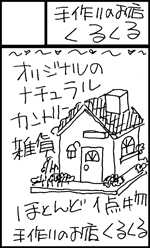 手作りのお店
くるくる
オリジナルの
ナチュラル
カントリー
雑貨
ほとんど1点物
手作りのお店くるくる